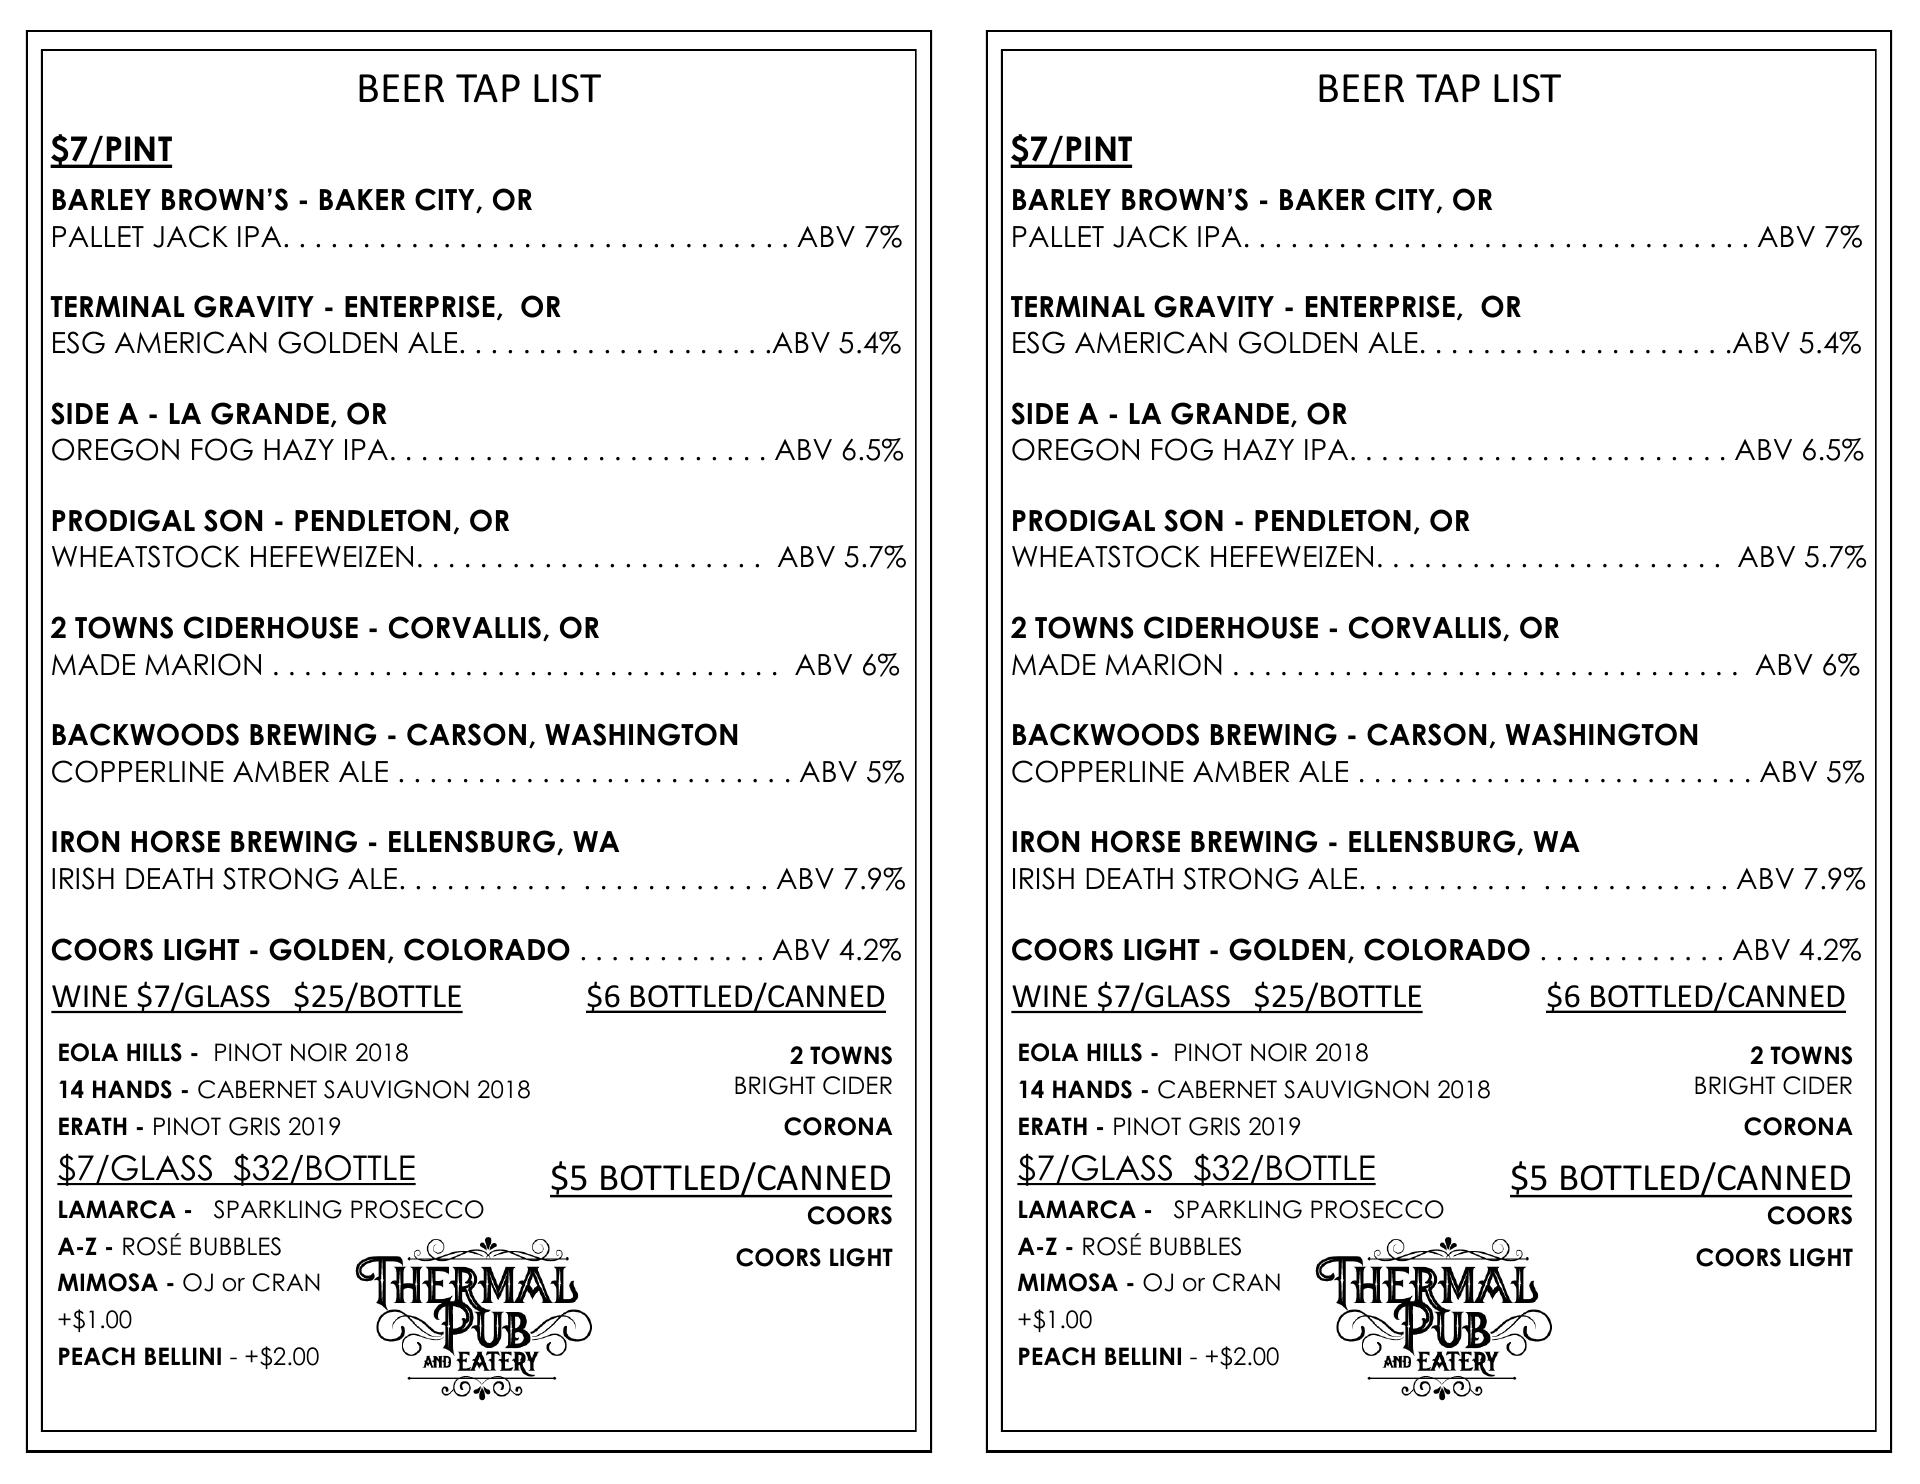 BEER TAP LIST
$7/PINT
BARLEY BROWN’S - BAKER CITY, OR
PALLET JACK IPA. . . . . . . . . . . . . . . . . . . . . . . . . . . . . . . . ABV 7%
TERMINAL GRAVITY - ENTERPRISE,  OR
ESG AMERICAN GOLDEN ALE. . . . . . . . . . . . . . . . . . . .ABV 5.4%
SIDE A - LA GRANDE, OR
OREGON FOG HAZY IPA. . . . . . . . . . . . . . . . . . . . . . . . ABV 6.5%
PRODIGAL SON - PENDLETON, OR
WHEATSTOCK HEFEWEIZEN. . . . . . . . . . . . . . . . . . . . . .  ABV 5.7%
2 TOWNS CIDERHOUSE - CORVALLIS, OR
MADE MARION . . . . . . . . . . . . . . . . . . . . . . . . . . . . . . . .  ABV 6%
BACKWOODS BREWING - CARSON, WASHINGTON
COPPERLINE AMBER ALE . . . . . . . . . . . . . . . . . . . . . . . . . ABV 5%
IRON HORSE BREWING - ELLENSBURG, WA
IRISH DEATH STRONG ALE. . . . . . . . . . .  . . . . . . . . . . . . ABV 7.9%
COORS LIGHT - GOLDEN, COLORADO . . . . . . . . . . . . ABV 4.2%
WINE $7/GLASS   $25/BOTTLE
EOLA HILLS -  PINOT NOIR 2018
14 HANDS - CABERNET SAUVIGNON 2018
ERATH - PINOT GRIS 2019
$7/GLASS  $32/BOTTLE
LAMARCA -   SPARKLING PROSECCO
A-Z - ROSÉ BUBBLES
MIMOSA - OJ or CRAN
+$1.00
PEACH BELLINI - +$2.00
$6 BOTTLED/CANNED
2 TOWNS
BRIGHT CIDER
CORONA
$5 BOTTLED/CANNED
COORS
COORS LIGHT
THERMAL
PUB
AND EATERY
BEER TAP LIST
$7/PINT
BARLEY BROWN’S - BAKER CITY, OR
PALLET JACK IPA. . . . . . . . . . . . . . . . . . . . . . . . . . . . . . . . ABV 7%
TERMINAL GRAVITY - ENTERPRISE,  OR
ESG AMERICAN GOLDEN ALE. . . . . . . . . . . . . . . . . . . .ABV 5.4%
SIDE A - LA GRANDE, OR
OREGON FOG HAZY IPA. . . . . . . . . . . . . . . . . . . . . . . . ABV 6.5%
PRODIGAL SON - PENDLETON, OR
WHEATSTOCK HEFEWEIZEN. . . . . . . . . . . . . . . . . . . . . .  ABV 5.7%
2 TOWNS CIDERHOUSE - CORVALLIS, OR
MADE MARION . . . . . . . . . . . . . . . . . . . . . . . . . . . . . . . .  ABV 6%
BACKWOODS BREWING - CARSON, WASHINGTON
COPPERLINE AMBER ALE . . . . . . . . . . . . . . . . . . . . . . . . . ABV 5%
IRON HORSE BREWING - ELLENSBURG, WA
IRISH DEATH STRONG ALE. . . . . . . . . . .  . . . . . . . . . . . . ABV 7.9%
COORS LIGHT - GOLDEN, COLORADO . . . . . . . . . . . . ABV 4.2%
WINE $7/GLASS   $25/BOTTLE
EOLA HILLS -  PINOT NOIR 2018
14 HANDS - CABERNET SAUVIGNON 2018
ERATH - PINOT GRIS 2019
$7/GLASS  $32/BOTTLE
LAMARCA -   SPARKLING PROSECCO
A-Z - ROSÉ BUBBLES
MIMOSA - OJ or CRAN
+$1.00
PEACH BELLINI - +$2.00
$6 BOTTLED/CANNED
2 TOWNS
BRIGHT CIDER
CORONA
$5 BOTTLED/CANNED
COORS
COORS LIGHT
THERMAL
PUB
AND EATERY